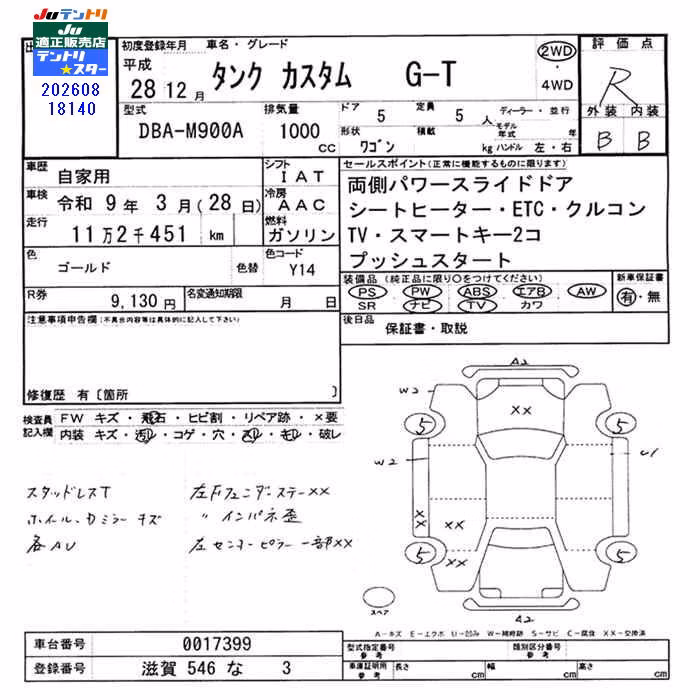 JUテントリ
JU
適正販売店
テントリ
★スター
202608
18140
初度登録年月 車名・グレード
平成
28 12 月 タンク カスタム G-T
2WD
・
4WD
評価点
R
外装 内装
B B
型式 DBA-M900A
排気量 1000 CC
ドア 5 定員 5 人
形状 ワゴン 積載 kg
ディーラー・並行
モデル年式 年
ハンドル 左・右
車歴 自家用
シフト IAT
車検 令和 9 年 3 月 (28 日)
冷房 AAC
走行 11万2千451 km
燃料 ガソリン
色 ゴールド 色替
色コード Y14
R券 9,130 円
名変通知期限 月 日
セールスポイント(正常に機能するものに限ります)
両側パワースライドドア
シートヒーター・ETC・クルコン
TV・スマートキー2コ
プッシュスタート
装備品 (純正品に限り○をつけてください)
PS・PW・ABS・エアB・AW
SR ナビ TV カワ
新車保証書
有・無
後日品 保証書・取説
注意事項申告欄(不具合内容等は具体的に記入して下さい)
修復歴 有〔箇所 〕
検査員記入欄
FW キズ・飛石・ヒビ割・リペア跡・×要
内装 キズ・汚レ・コゲ・穴・スレ・モレ・破レ
スタッドレスT
ホイール、ドミラー キズ
各AU
左Fフェンダーステー××
〃 インパネ歪
左センターピラー一部××
A2
W2
××
5
5
W2
U1
××
××
××
5
5
A2
スペア
A-キズ E-エクボ U-凹み W-補修跡 S-サビ C-腐食 XX-交換済
車台番号 0017399
登録番号 滋賀 546 な 3
型式指定番号 参考
類別区分番号 参考
車庫証明用 参考
長さ cm 幅 cm 高さ cm